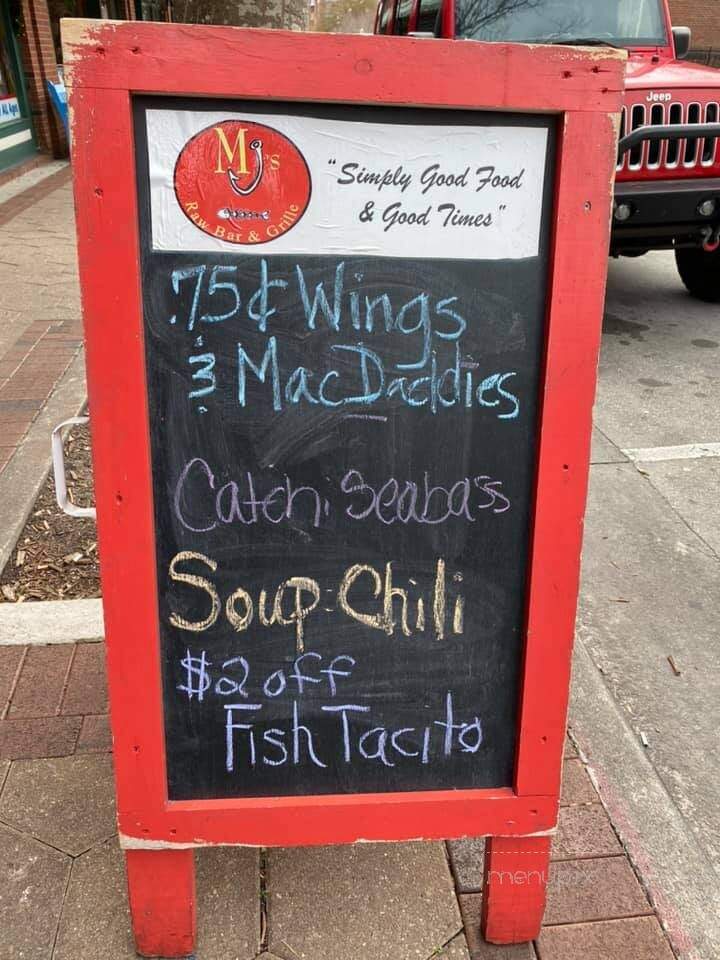 MJ's
Raw Bar & Grille
"Simply Good Food
& Good Times"
.75¢ Wings
& MacDaddies
Catch: Seabass
Soup: Chili
$2 off
Fish Tacito
Jeep
menupix